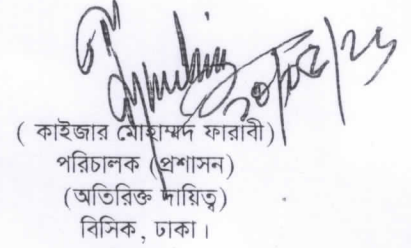 ( কাইজার মোহাম্মদ ফারাবী)
পরিচালক (প্রশাসন)
(অতিরিক্ত দায়িত্ব)
বিসিক, ঢাকা।